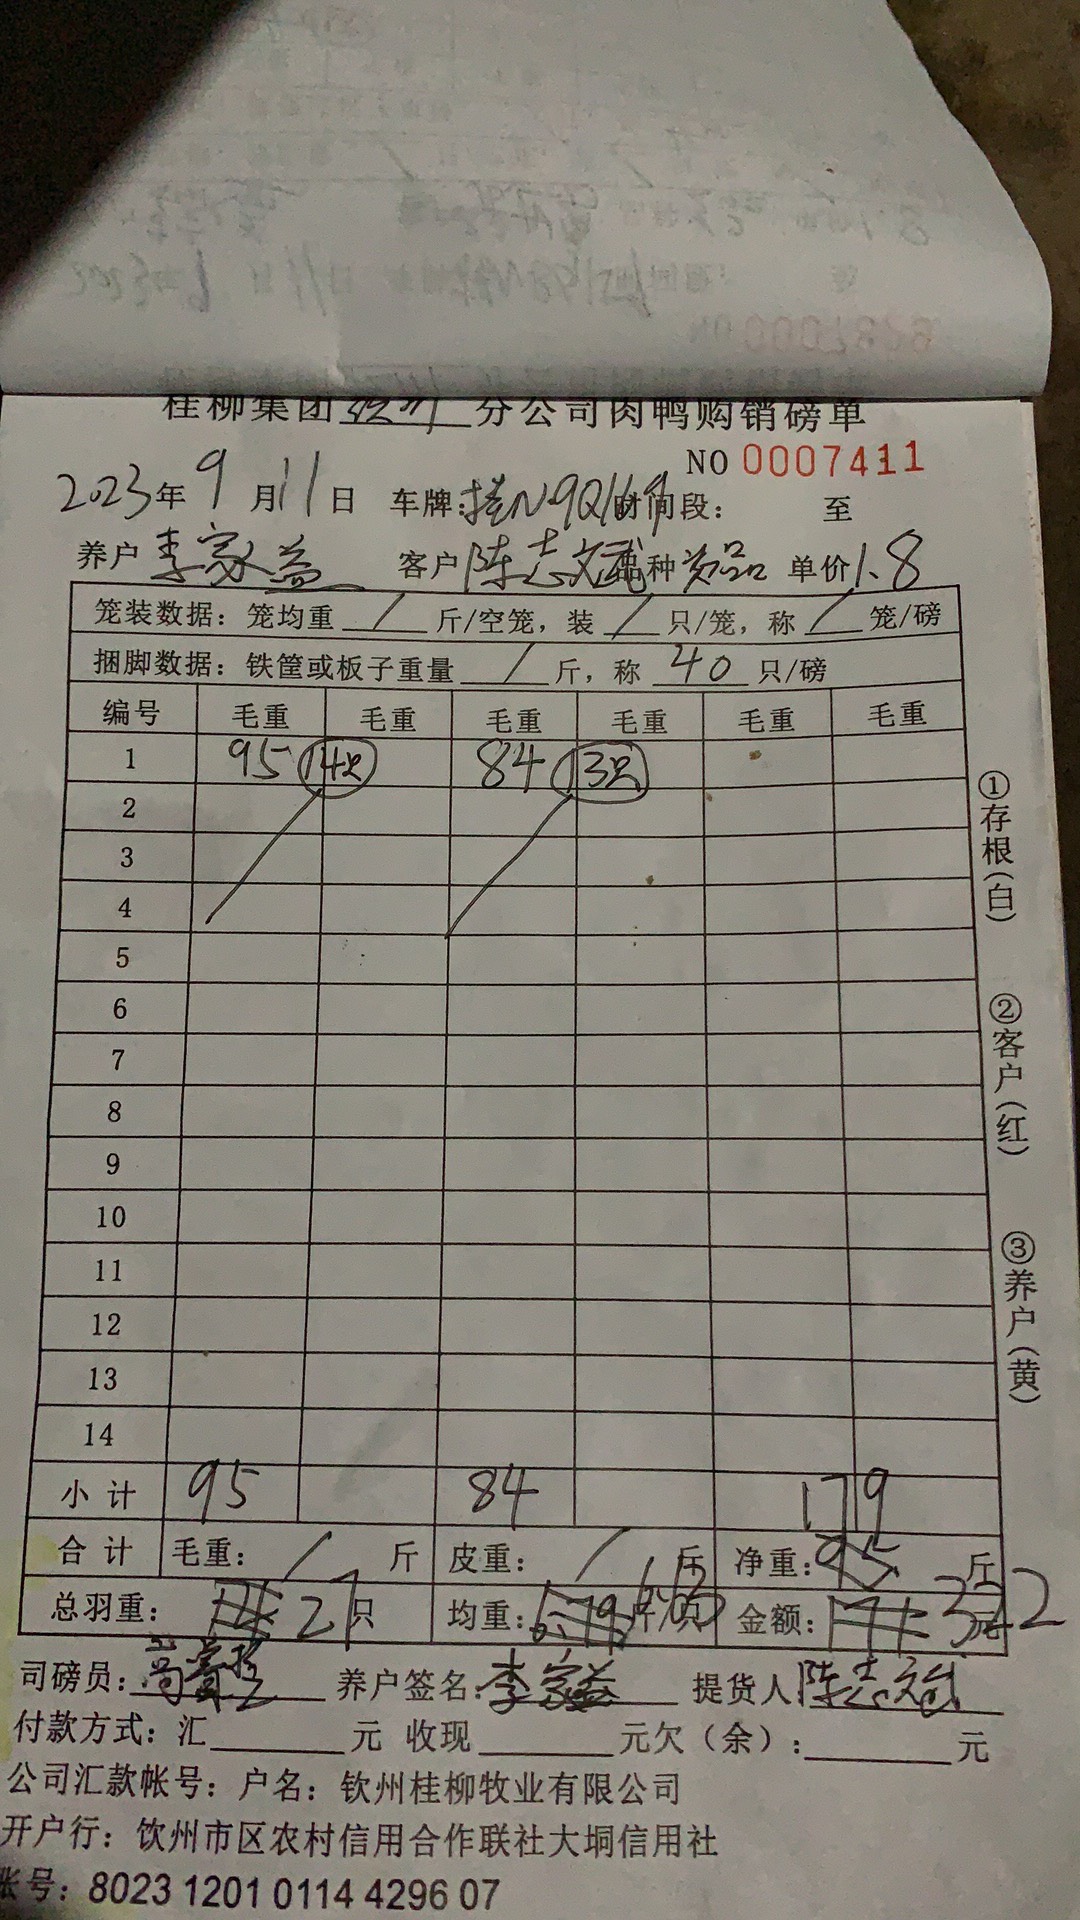 桂柳集团 分公司肉鸭购销磅单
NO 0007411
2023年9月11日 车牌:桂N9Q169 时间段: 至
养户 李家益 客户 陈志斌 品种 次品 单价 1.8
笼装数据: 笼均重 / 斤/空笼, 装 / 只/笼, 称 / 笼/磅
捆脚数据: 铁筐或板子重量 / 斤, 称 40 只/磅
编号 毛重 毛重 毛重 毛重 毛重 毛重
1 95 14只 84 13只
2
3
4
5
6
7
8
9
10
11
12
13
14
小计 95 84 179
合计 毛重: / 斤 皮重: / 斤 净重: 95 斤
总羽重: 27只 均重: 6.63 斤/只 金额: 322 元
司磅员: 养户签名: 李家益 提货人 陈志斌
付款方式: 汇 元 收现 元欠(余): 元
公司汇款帐号: 户名: 钦州桂柳牧业有限公司
开户行: 钦州市区农村信用合作联社大垌信用社
账号: 8023 1201 0114 4296 07
①存根(白)
②客户(红)
③养户(黄)